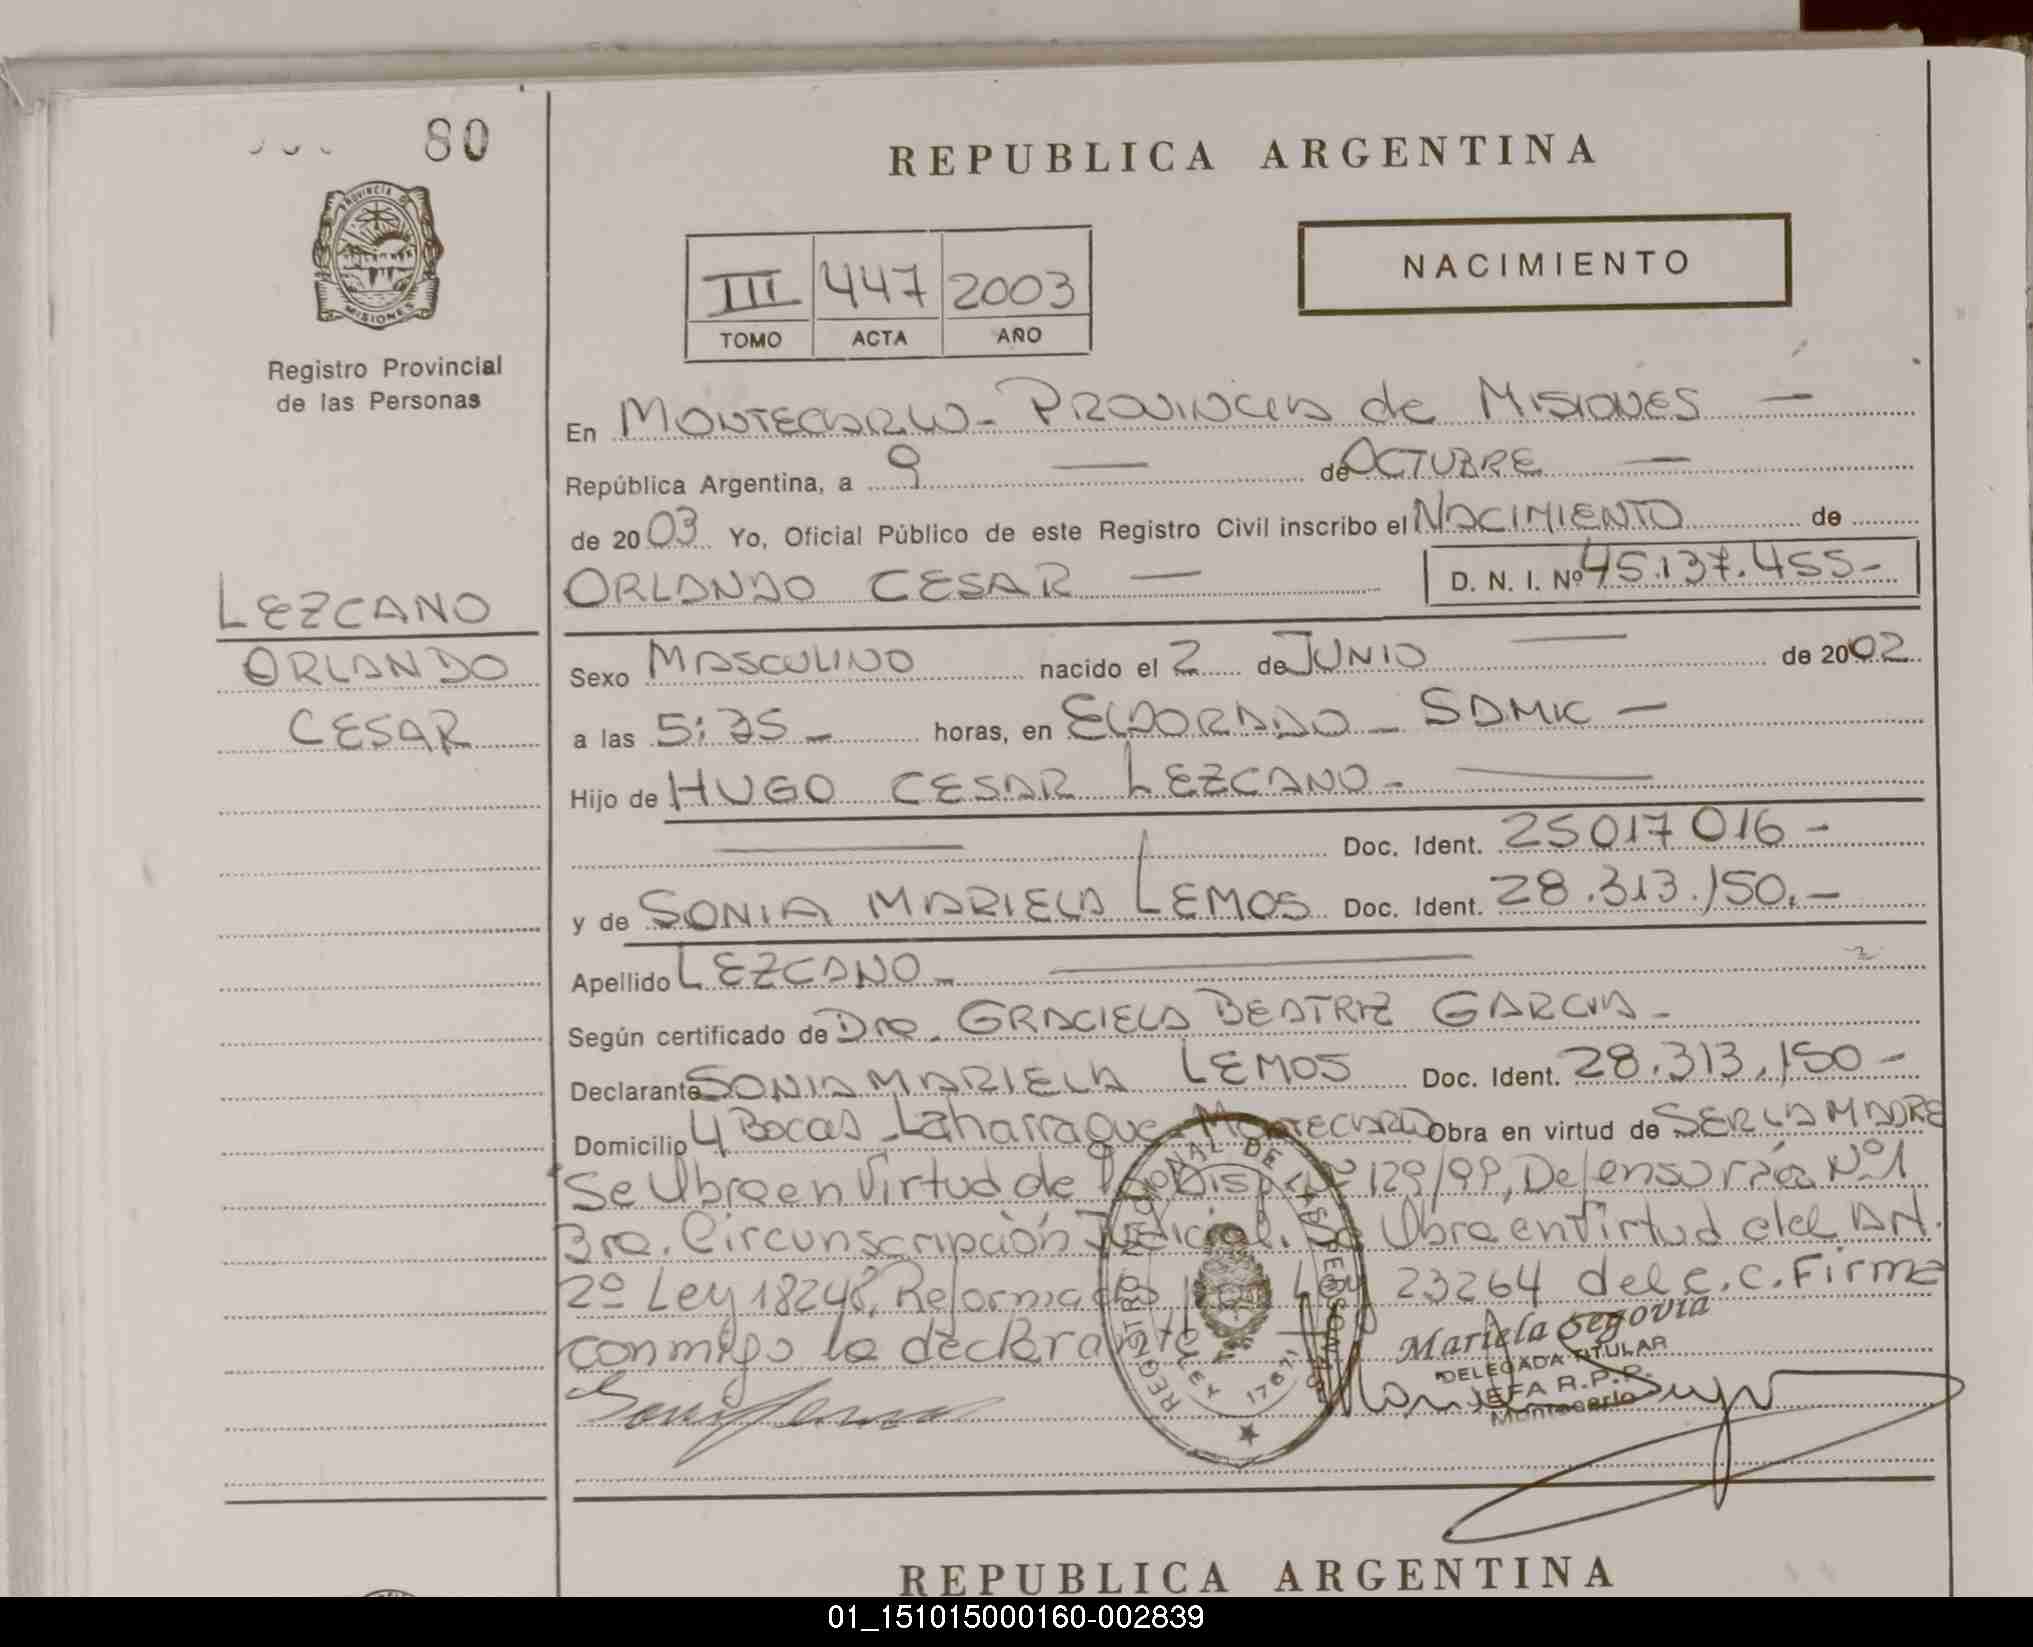 80
REPUBLICA ARGENTINA
PROVINCIA DE
MISIONES
Registro Provincial
de las Personas
NACIMIENTO
III 447 2003
TOMO ACTA AÑO
En MONTECARLO - PROVINCIA de MISIONES —
República Argentina, a 9 — de OCTUBRE —
de 2003 Yo, Oficial Público de este Registro Civil inscribo el NACIMIENTO de
ORLANDO CESAR — D. N. I. Nº 45.137.455-
LEZCANO
ORLANDO
CESAR
Sexo MASCULINO nacido el 2 de JUNIO — de 2002
a las 5:35 - horas, en ELDORADO - SAMIC —
Hijo de HUGO CESAR LEZCANO - —
— Doc. Ident. 25017016 -
y de SONIA MARIELA LEMOS Doc. Ident. 28.313.150.-
Apellido LEZCANO - —
Según certificado de Dra. GRACIELA BEATRIZ GARCIA -
Declarante SONIA MARIELA LEMOS Doc. Ident. 28.313.150 -
Domicilio 4 Bocas - Laharrague - MONTECARLO Obra en virtud de SER LA MADRE
Se Obra en Virtud de la Disp. Nº 129/99, Defensoría Nº 1
3ra. Circunscripción Judicial. Se Obra en Virtud del Art.
2º Ley 18248, Reformada Ley 23264 del C.C. Firma
conmigo la declarante
REGISTRO NACIONAL DE LAS PERSONAS
LEY 17671
Mariela Segovia
DELEGADA TITULAR
JEFA R.P.P.
Montecarlo
REPUBLICA ARGENTINA
01_151015000160-002839